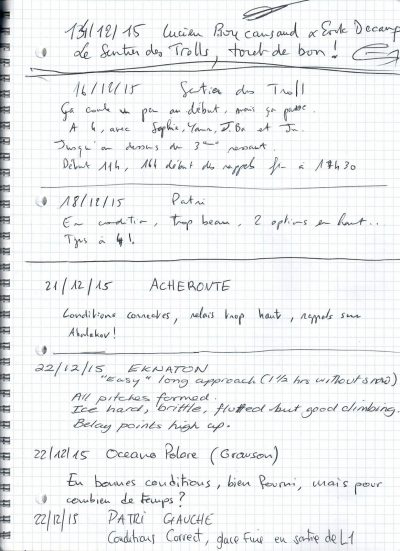 13/12/15 Lucien Boucansaud & Erik Decamp
Le Sentier des Trolls, tout de bon !
14/12/15 Sentier des Troll
Ça coule un peu au début, mais ça passe.
A 4, avec Sophie, Yann, J.Ba et Ju.
Jusqu'au dessus du 3ème ressaut.
Début 11h, 16h début des rappels fin à 17h30
18/12/15 Patri
En condition, trop beau, 2 options en haut..
Tjrs à 4!
21/12/15 ACHEROUTE
Conditions correctes, relais trop haut, rappels sur
Abalakov!
22/12/15 EKNATON
"Easy" long approach (1½ hrs without snow)
All pitches formed.
Ice hard, brittle, fluted but good climbing.
Belay points high up.
22/12/15 Oceano Polare (Grauson)
En bonnes conditions, bien fourni, mais pour
combien de temps ?
22/12/15 PATRI GAUCHE
Conditions Correct, glace fine en sortie de L1